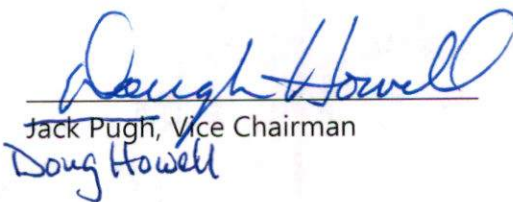 Doug Howell
Jack Pugh, Vice Chairman
Doug Howell